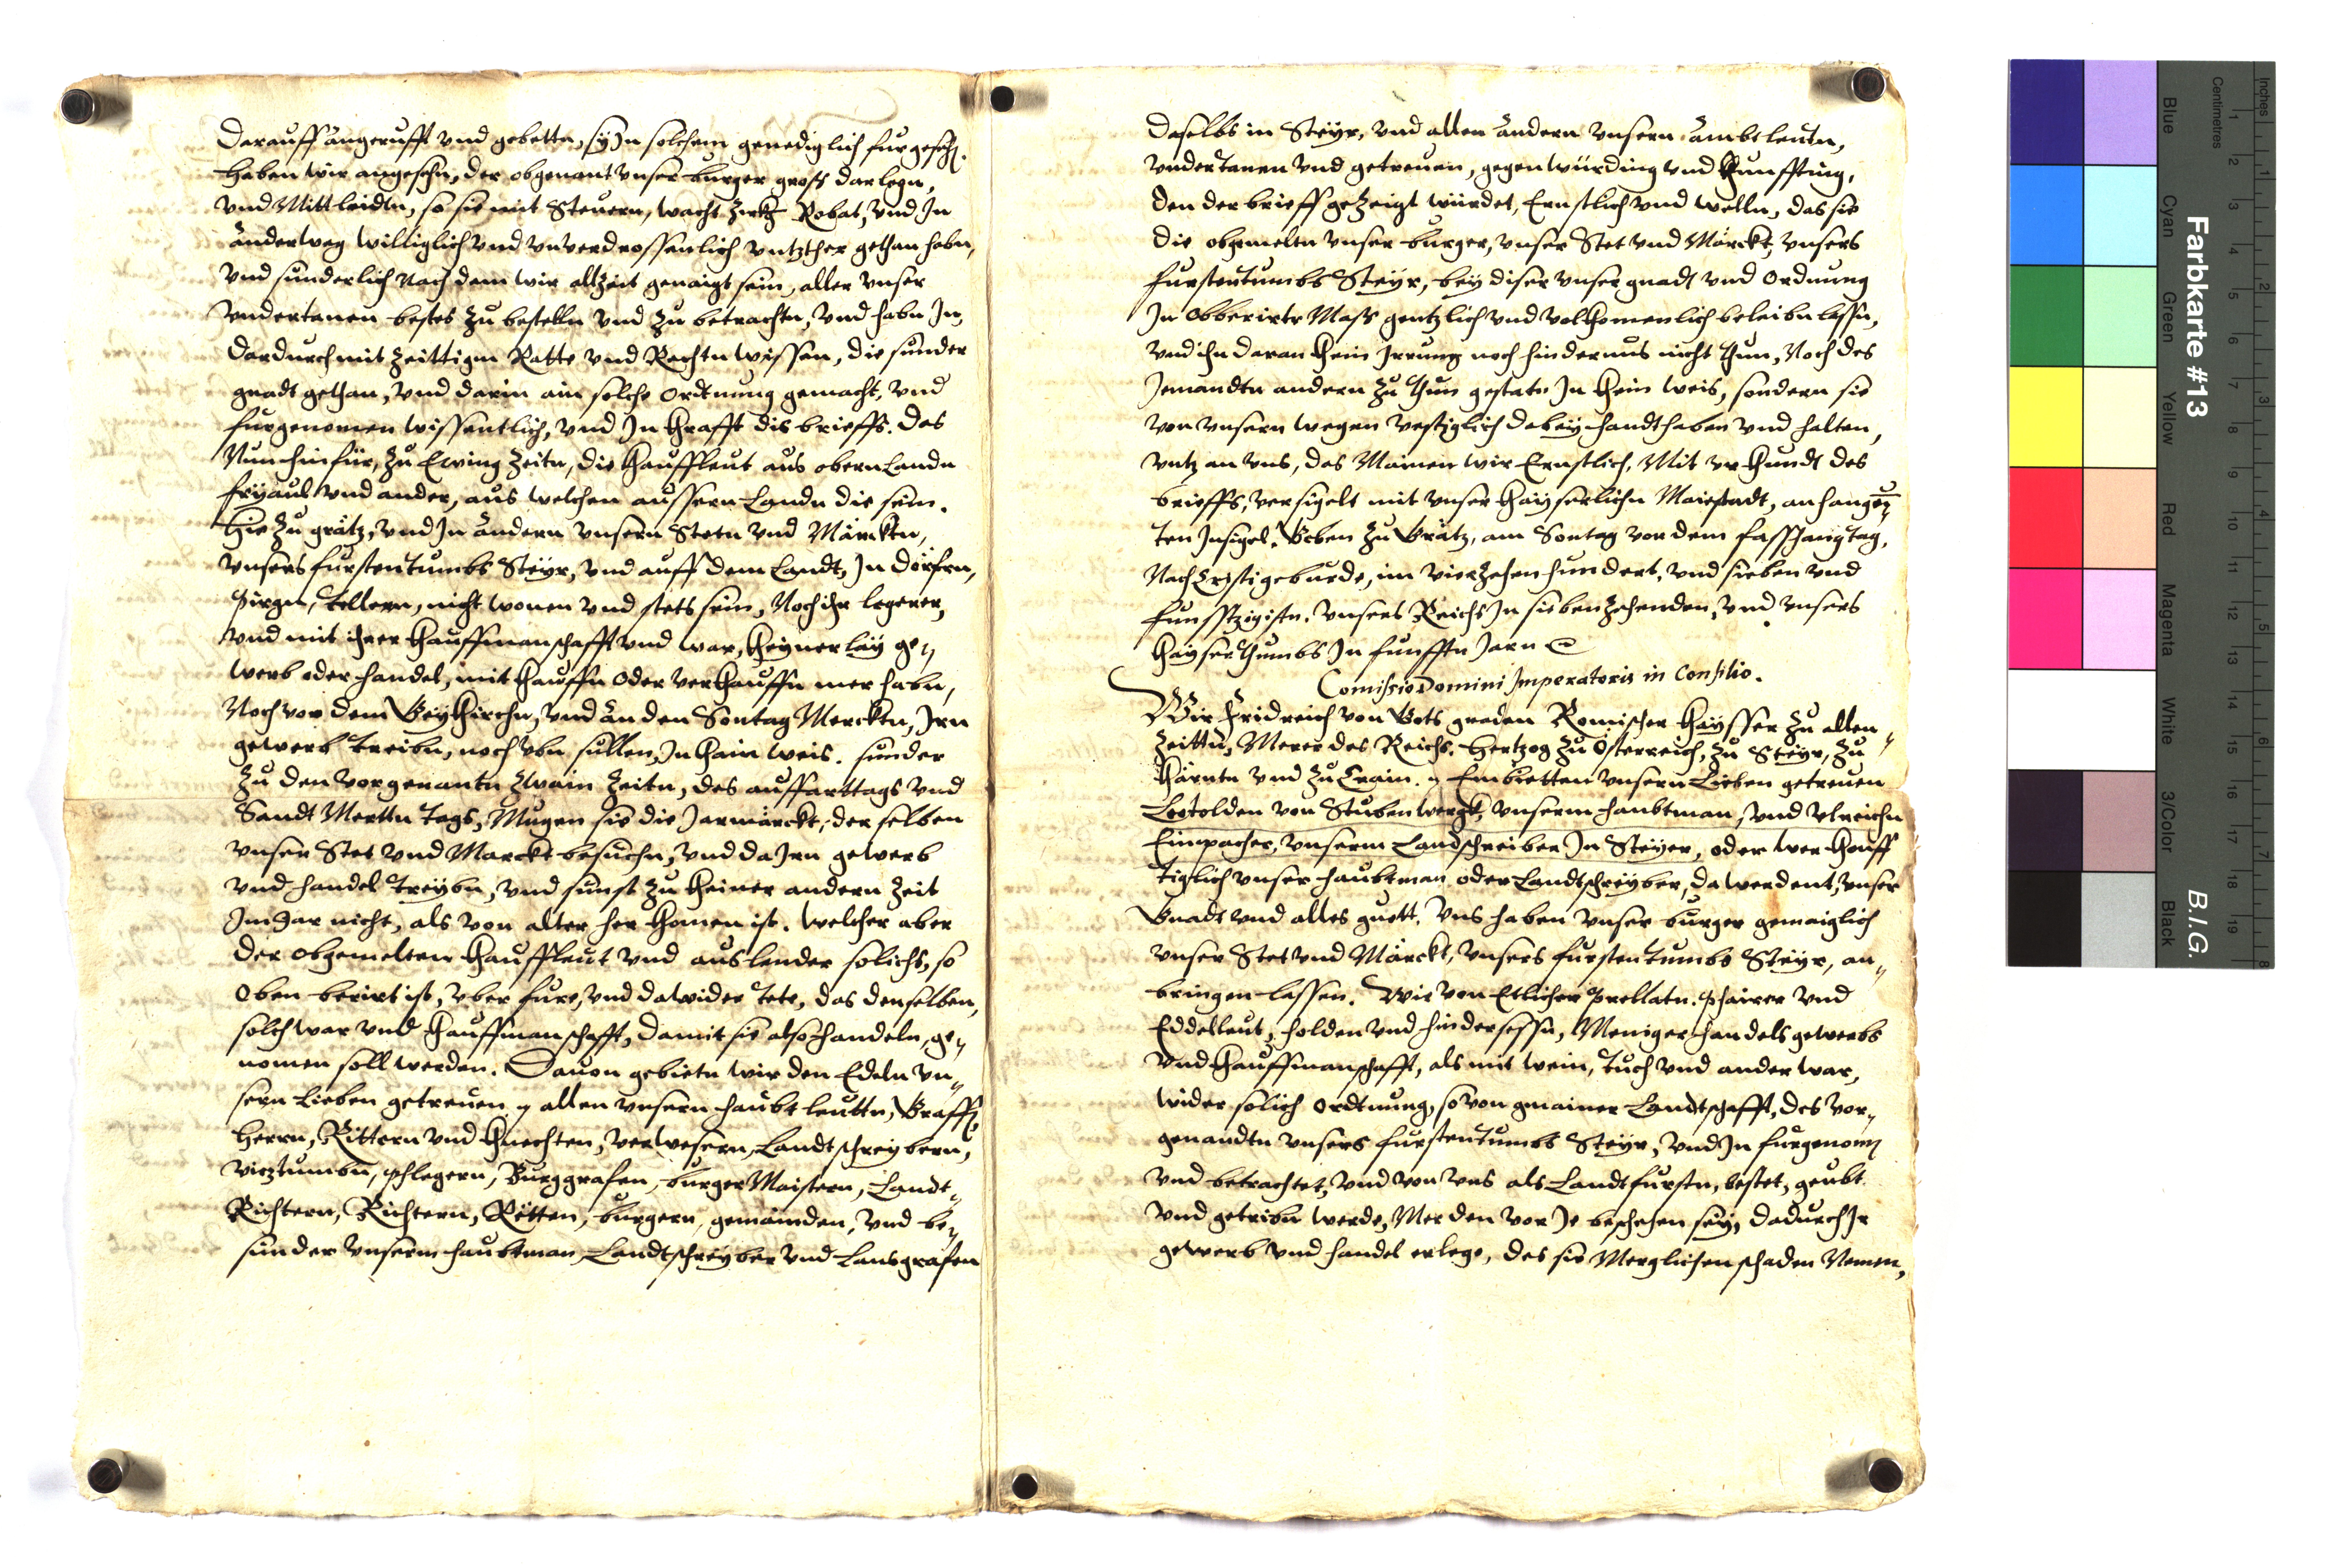 Darauff angerufft vnd gebettn, sy Jn solchem genediglich furgesehn.
Haben wir angesehn, der obgenant vnser burger gross darlegn,
vnd Mittleidtn, so sie mit Steuern, wacht zirkh Robat, vnd Jn
änderweg williglich vnd vnverdrossenlich vntzther gethan habn,
vnd sunderlich nach dem wir altzeit genaigt sein, aller vnser
vndertanen bestes zu bestelln vnd zu betrachtn, vnd habn Jn,
dardurch mit zeittigm Ratte vnd Rechtn wissen, die sunder
gnadt gethan, vnd darin ain solche ordtnung gemacht, vnd
furgenomen wissentlich, vnd Jn khrafft dis brieffs. Das
Nun hinfür, zu Ewing zeitn, die khauffleut aus obern Landn
fryaul vnd ander, aus welchen aussern Landn die sein.
Hie zu grätz, vnd Jn ändern vnsern Stetn vnd Märcktn,
vnsers furstentumbs Steyr, vnd auff dem Landt, Jn dörfrn,
pirgn, tellern, nicht wonen vnd stets sein, Noch ihr legerer,
vnd mit ihrer khauffmanschafft vnd war, kheynerlay ge„
werb oder handel, mit khauffn oder verkhauffn mer habn,
Noch vor dem Geykhirchn, vnd än den Sontag Mercktn, Jrn
gewerb treibn, noch vbn sullen, Jn khain weis. sunder
zu den vorgenantn zwain zeitn, des auffarttags vnd
Sandt Mertn tags, Mugen sie die Jarmärckt, der selben
vnser Stet vnd Marckt besuchn, vnd da Jrn gewerb
vnd handel treybn, vnd sunst zu kheiner andern zeit
Jm Jar nicht, als von alter her khomen ist. welcher aber
der obgemelten khauffleut vnd auslender solichs, so
oben berirt ist, vber fure, vnd dawider tete, das denselben,
solch war vnd khauffmanschafft, damit sie also handeln, ge„
nomen soll werden. Dauon gebietn wir den Edeln vn„
sern Lieben getreuen, allen vnsern haubtleuttn, Graffn,
Herrn, Rittern vnd khnechten, verwesern, Landtschreybern,
vicztumbn, phlegern, Burggrafen, burger Maistern, Landt„
Richtern, Richtern, Rätten, burgern, gemainden, vnd be„
sunder vnserm haubtman, Landtschreyber vnd Lansgrafen
daselbs in Steyr, vnd allen ändern vnsern ämbtleuten,
vndertanen vnd getreuen, gegenwürding vnd khunffting,
den der brieff gezeigt würdet, Ernstlich vnd welln, das sie
die obgemelten vnser burger, vnser Stet vnd Märckt, vnsers
furstentumbs Steyr, bey diser vnser gnadt vnd ordnung
Jn obberirter Mass gentzlich vnd volkhomenlich beleibn lassn,
vnd ihn daran khein Jrrung noch hindernus nicht thun, Noch des
Jemandtn andern zu thun gestatn Jn khein weis, sondern sie
von vnsern wegen vestiglich dabey handthaben vnd halten,
vntz an vns, das Mainen wir Ernstlich, Mit vrkhundt des
brieffs, versigelt mit vnser khayserlichn Maiestadt, anhangen„
ten Jnsigel. Geben zu Grätz, am Sontag vor dem fasschangtag,
Nach Cristi geburde, im vierzehen hundert, vnd sieben vnd
funfftzigistn. vnsers Reichs Jn siebenzehenden, vnd vnsers
khayserthumbs Jn funfftn Jarn
Comissio Domini Jmperatoris in Consilio.
Wir Fridreich von Gots gnaden Romischer khaysser zu allen„
zeittn, Merer des Reichs. Hertzog zu österreich, zu Steyr, zu
khärntn vnd zu Crain. Embietten vnsern Lieben getreuen
Leotolden von Stubenwergk, vnserm haubtman, vnd vlreichn
Einpacher, vnserm Landschreiber Jn Steyer, oder wer khunff
tiglich vnser haubtman oder Landtschreyber, da werdent, vnser
Gnadt vnd alles guett. Vns haben vnser burger gemaiglich
vnser Stet vnd Märckt, vnsers furstentumbs Steyr, an„
bringen lassen. Wie von Etlicher Prellatn. phärrer vnd
Eddelleut, holden vnd hindersessn, Meniger handels gewerbs
vnd khauffmanschafft, als mit wein, tuch vnd ander war,
wider solich ordtnung, so von gmainer Landtschafft, des vor„
genandtn vnsers furstentumbs Steyr, vnd Jn furgenomen
vnd betrachtet, vnd von vns als Landtfurstn, bestet, geubt
vnd getribn werde, Mer den vor Je beschehen sey, dadurch Jr
gewerb vnd handel erlege, des sie Merglichen schaden Nemen,
Farbkarte #13
B.I.G.
Inches
Centimetres
Blue
Cyan
Green
Yellow
Red
Magenta
White
3/Color
Black